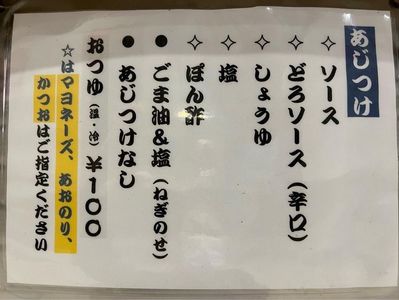 あじつけ
✧ソース
✧どろソース(辛口)
✧しょうゆ
✧塩
✧ぽん酢
●ごま油&塩(ねぎのせ)
●あじつけなし
おつゆ(温・冷)¥100
☆はマヨネーズ、あおのり、
かつおはご指定ください